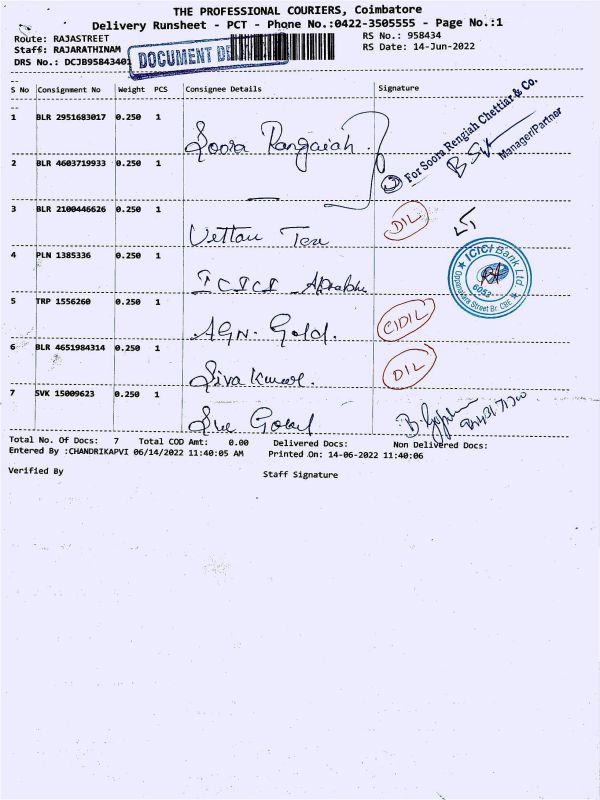 THE PROFESSIONAL COURIERS, Coimbatore
Delivery Runsheet - PCT - Phone No.:0422-3505555 - Page No.:1
Route: RAJASTREET RS No.: 958434
Staff: RAJARATHINAM RS Date: 14-Jun-2022
DRS No.: DCJB95843401 DOCUMENT
S No Consignment No Weight PCS Consignee Details Signature
1 BLR 2951683017 0.250 1 Soora Rangaiah
For Soora Rengiah Chettiar & Co.
Manager/Partner
2 BLR 4603719933 0.250 1
3 BLR 2100446626 0.250 1 DIL
4 PLN 1385336 0.250 1 ICICI
ICICI Bank Ltd.
6053
Oppanakara Street Br. CBE
5 TRP 1556260 0.250 1 AGN. Gold. CIDIL
6 BLR 4651984314 0.250 1 Siva Kumar. DIL
7 SVK 15009623 0.250 1
Total No. Of Docs: 7 Total COD Amt: 0.00 Delivered Docs: Non Delivered Docs:
Entered By :CHANDRIKAPVI 06/14/2022 11:40:05 AM Printed On: 14-06-2022 11:40:06
Verified By Staff Signature